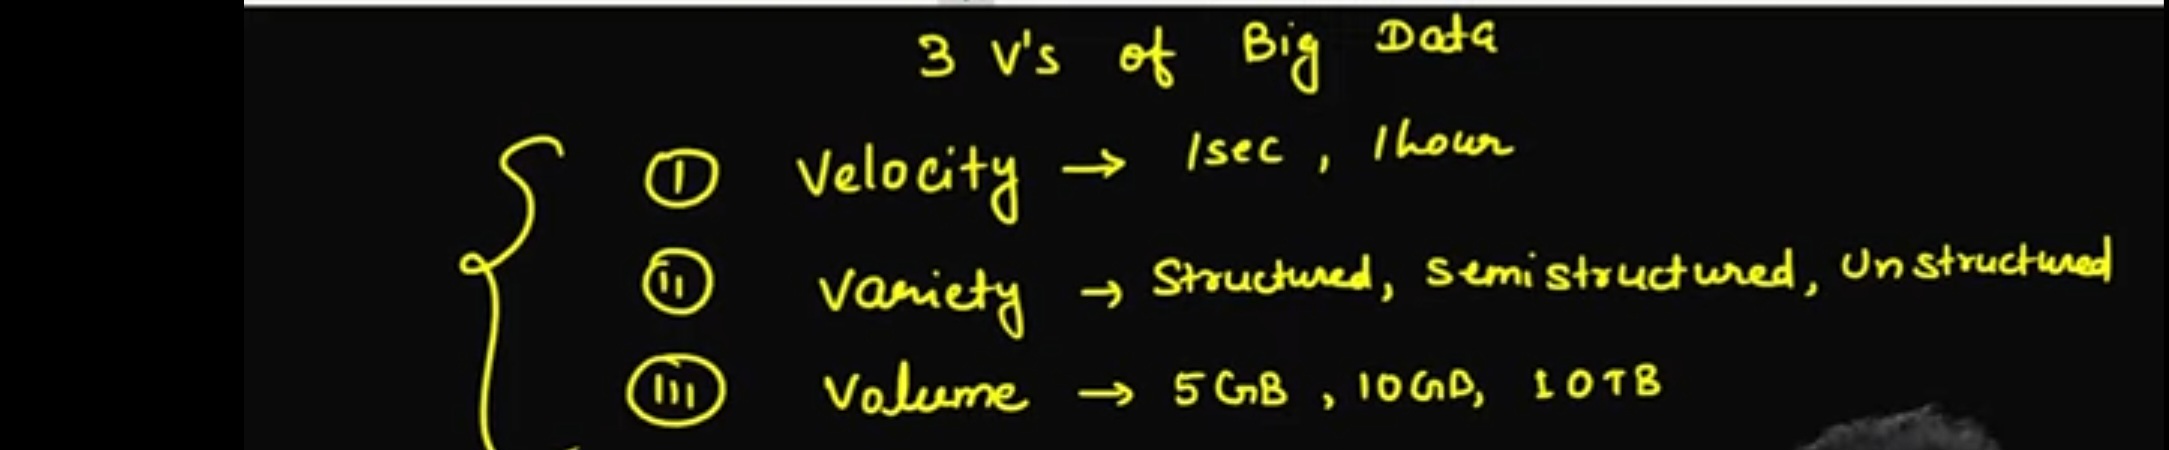 3 V's of Big Data
(i) Velocity → 1sec, 1hour
(ii) Variety → Structured, Semistructured, Unstructured
(iii) Volume → 5GB, 10GB, 10TB